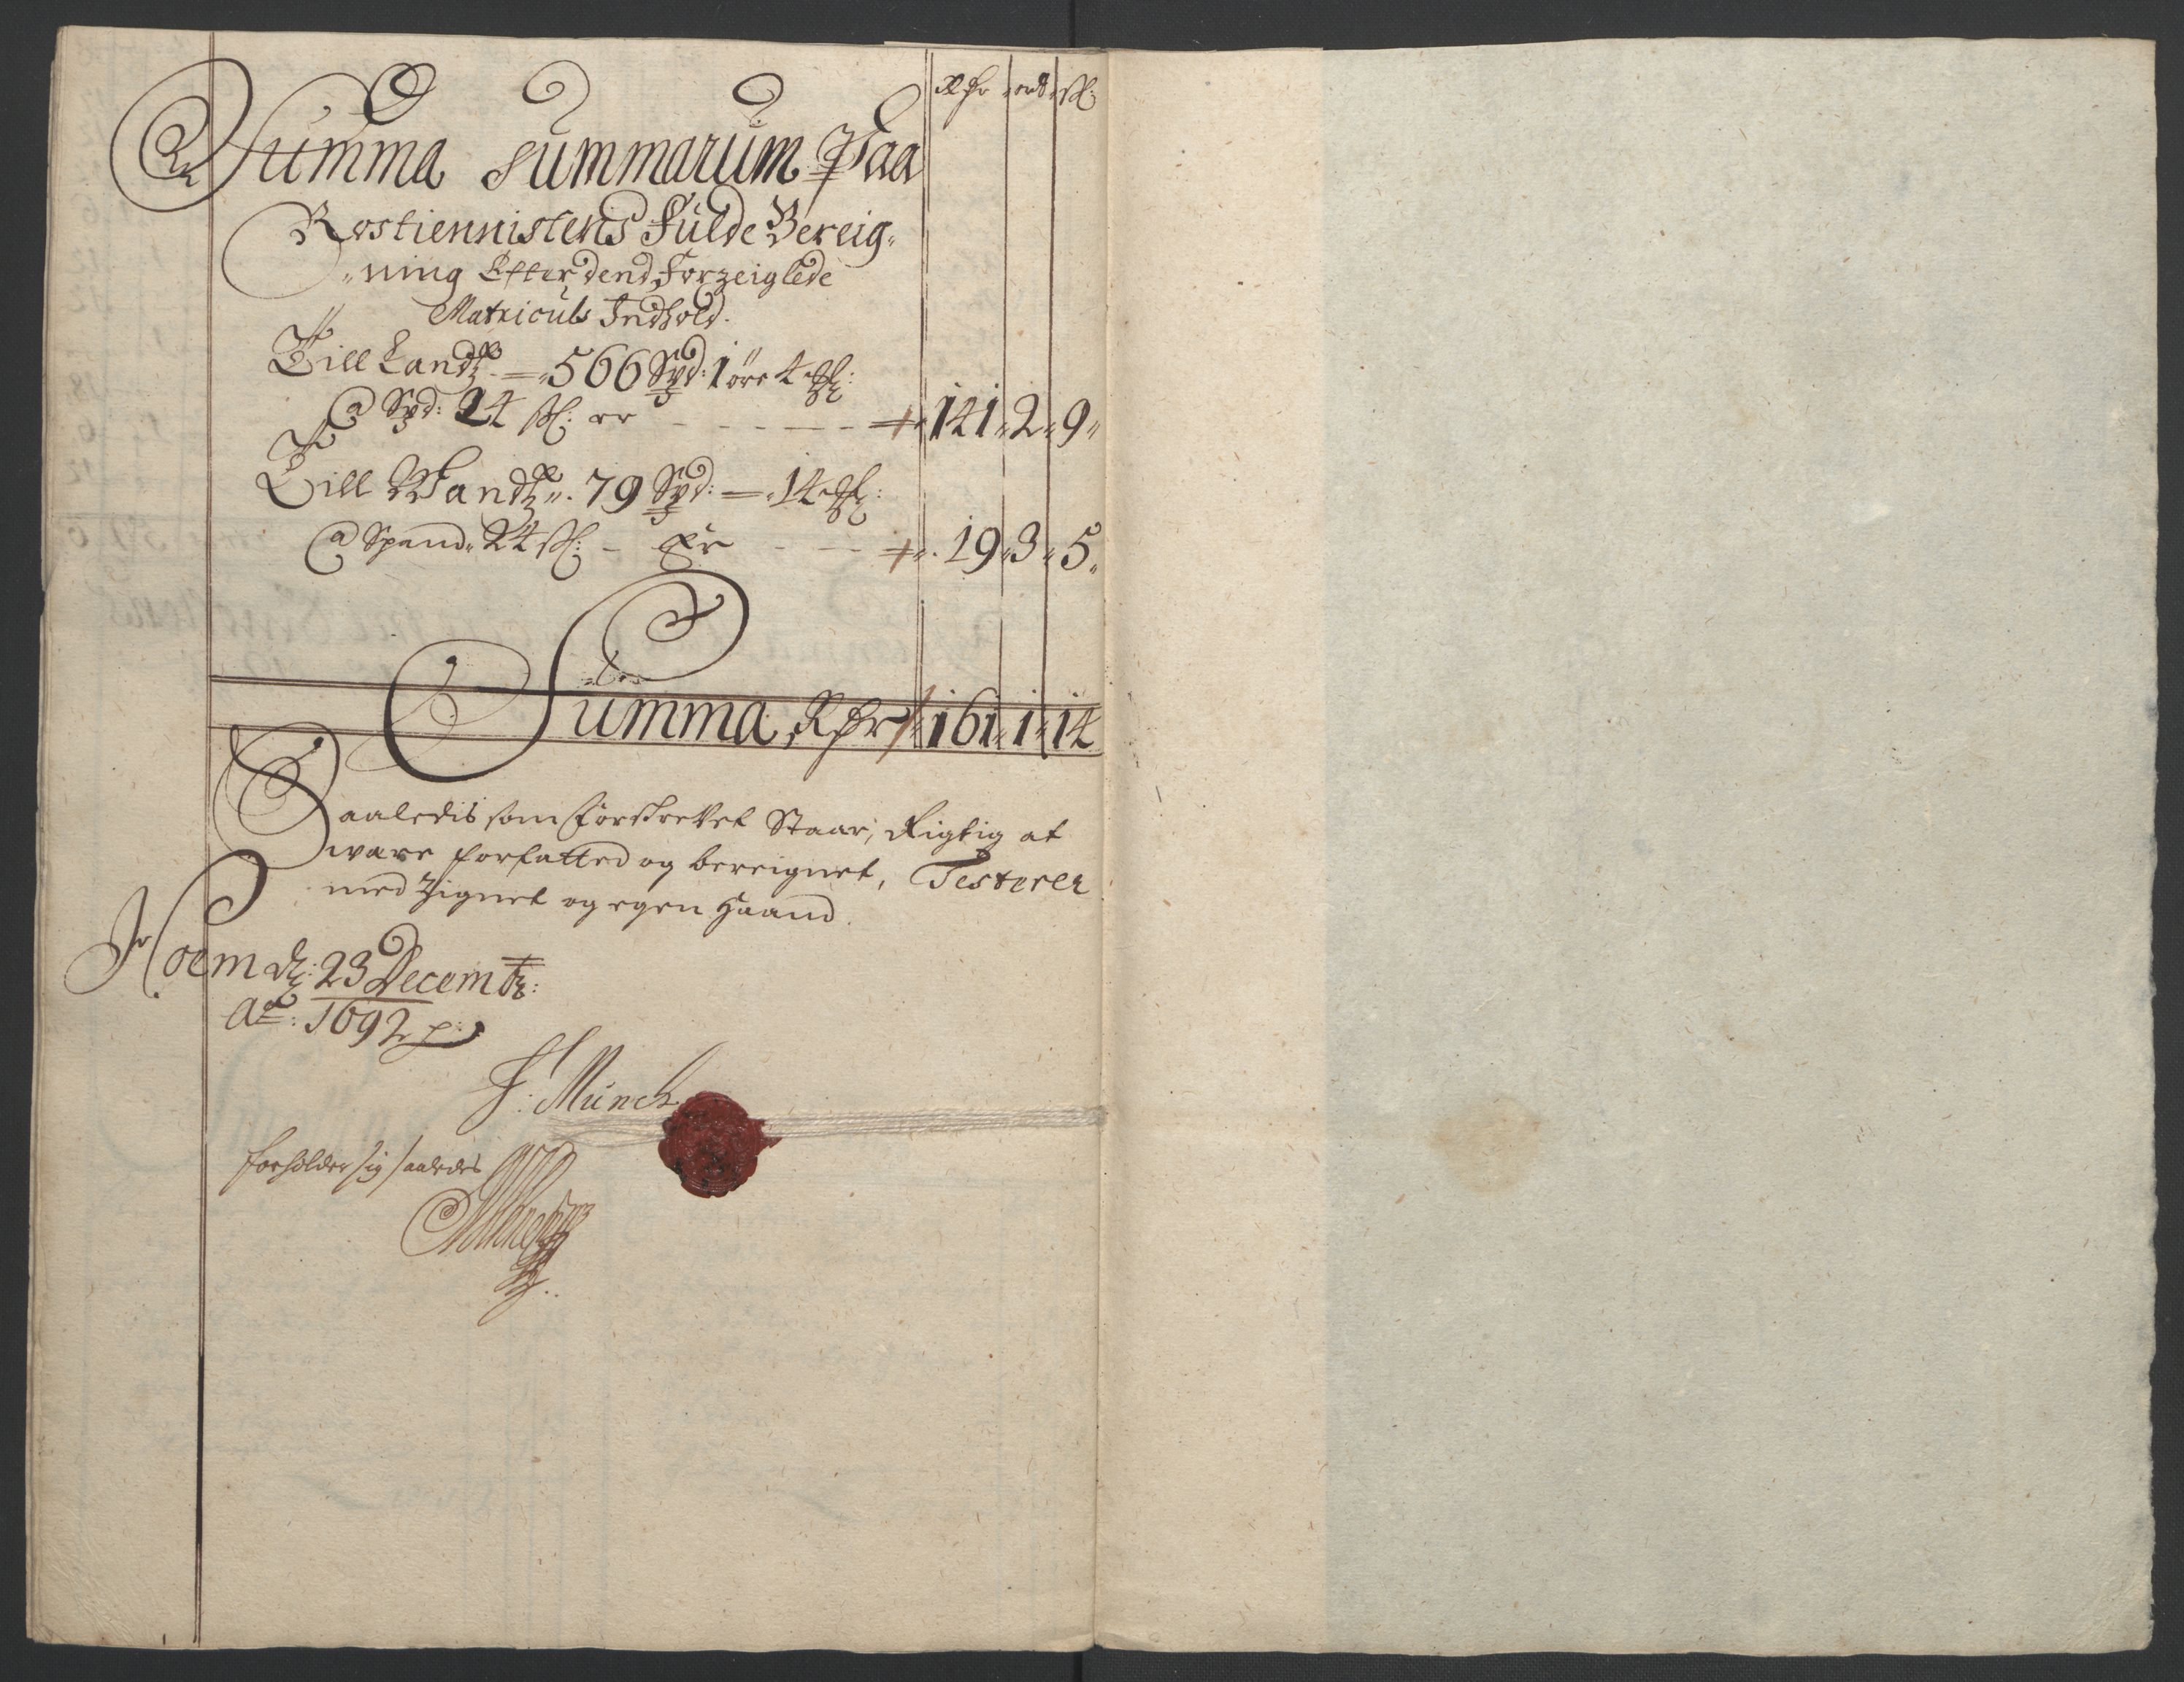 Rdr ort sk:
Summa Summarum Paa
Rostiennistens Fulde Bereig„
„ning Efter dend Forzeiglede
Matriculs Indhold.
Till Landtz. — 566 Spd: 1 öre 4
@ Spd: 24 sk: er 141 „ 2 „ 9 „
Till Wandtz „ 79 Spd: — 14
@ Spand „ 24 sk: – Er 19 „ 3 „ 5 „
Summa Rdr 161 „ 1 „ 14
Saaledis som forskrevet Staar, Rigtig at
være forfatted og bereignet, Testerer
med Zignet og egen Haand.
Hoem d: 23 Decembr:
Ao: 1692 p:
F: Münch
forholder sig saaledes